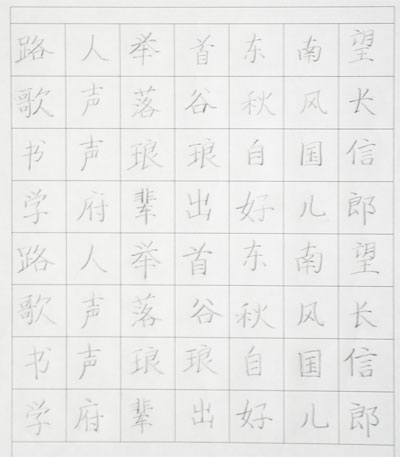 路人举首东南望
歌声落谷秋风长
书声琅琅自国信
学府辈出好儿郎
路人举首东南望
歌声落谷秋风长
书声琅琅自国信
学府辈出好儿郎